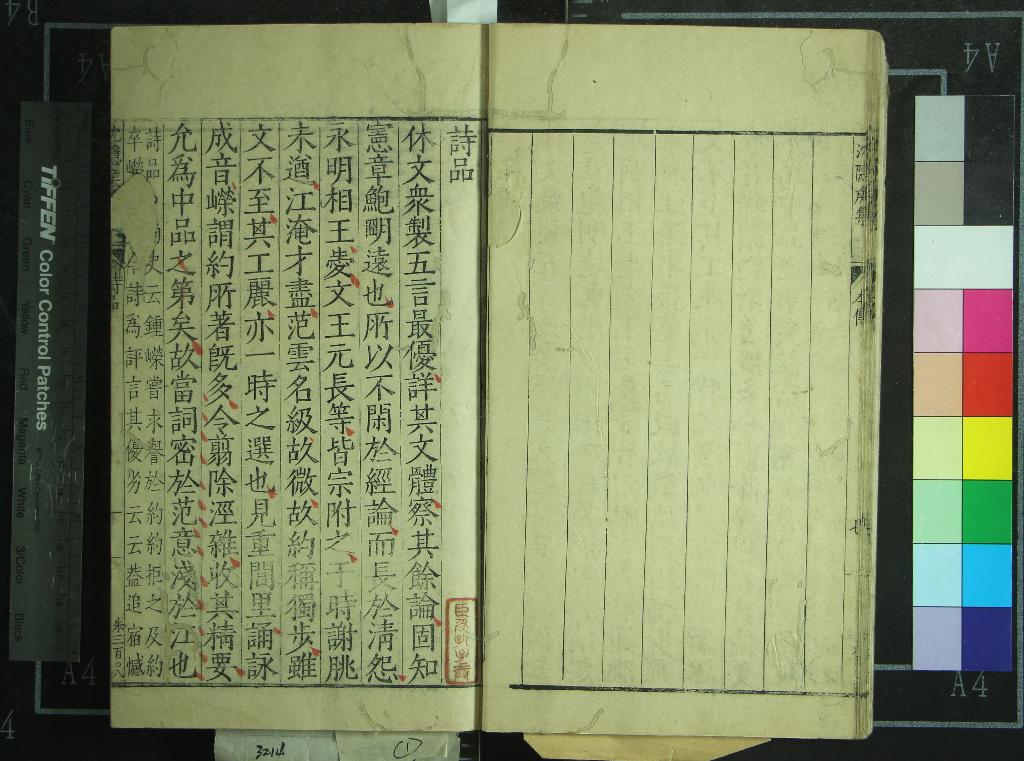 沈隱侯集
本傳
詩品
休文衆製五言最優詳其文體察其餘論固知
憲章鮑明遠也所以不閑於經論而長於清怨
永明相王愛文王元長等皆宗附之于時謝朓
未遒江淹才盡范雲名級故微故約稱獨步雖
文不至其工麗亦一時之選也見重閭里誦詠
成音嶸謂約所著旣多今翦除淫雜收其精要
允爲中品之第矣故當詞密於范意淺於江也
詩品 史云鍾嶸嘗求譽於約約拒之及約
卒嶸 詩爲評言其優劣云云葢追宿憾
詩品
TIFFEN Color Control Patches
Blue Cyan Green Yellow Red Magenta White 3/Color Black
A4
A4
A4
A4
3214
①